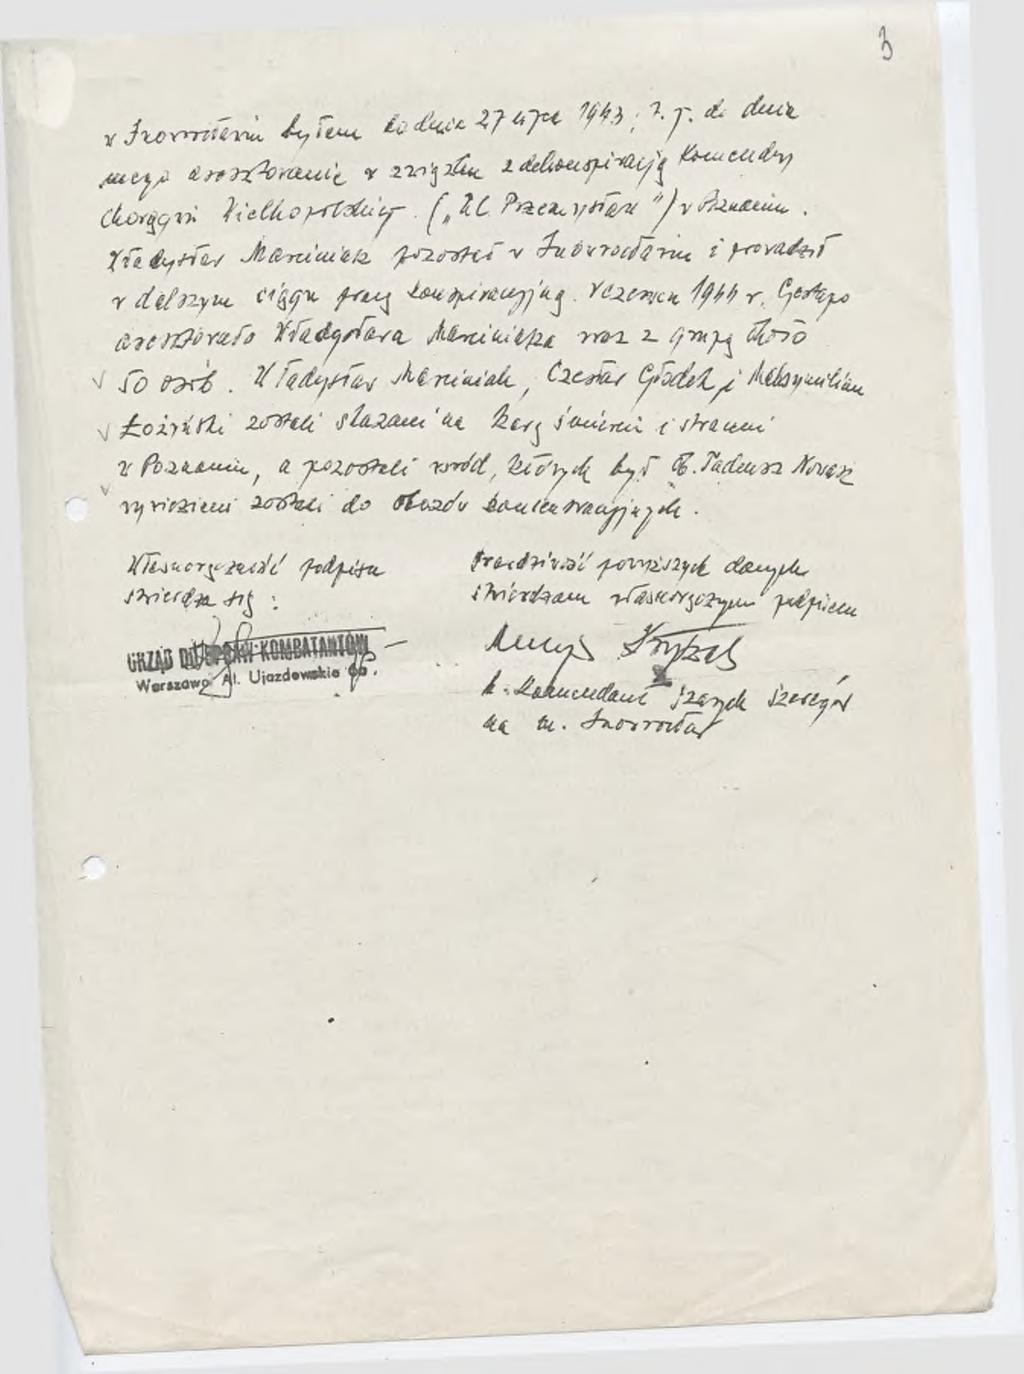 3
w Inowrocławiu byłem do dnia 27 lipca 1943; t. j. do dnia
mego aresztowania w związku z dekonspiracją Komendy
Chorągwi Wielkopolskiej ("Ul. Przemysław") w Poznaniu.
Władysław Marciniak pozostał w Inowrocławiu i prowadził
w dalszym ciągu pracę konspiracyjną. W czerwcu 1944 r. Gestapo
aresztowało Władysława Marciniaka wraz z grupą około
50 osób. Władysław Marciniak, Czesław Głodek i Maksymilian
Łożyński zostali skazani na karę śmierci i straceni
w Poznaniu, a pozostali wśród, których był Tadeusz Nowak
wywiezieni zostali do obozów koncentracyjnych.
Własnoręczność podpisu
stwierdza się:
URZĄD DO SPRAW KOMBATANTÓW
Warszawa, Al. Ujazdowskie
Prawdziwość powyższych danych
stwierdzam własnoręcznym podpisem
b. Komendant Szarych Szeregów
na m. Inowrocław